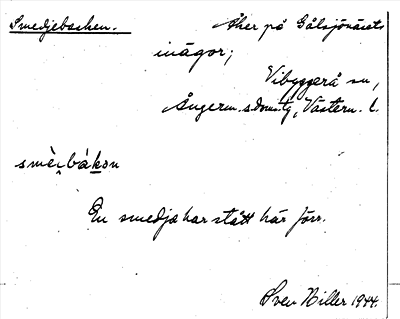 Smedjebacken. Åker på Gålsjönäsets
inägor;
Vibyggerå sn,
Ångerm. s. domstg, Västern. l.
smèi̯bàkøn
En smedja har stått här förr.
Sven Hiller 1944.